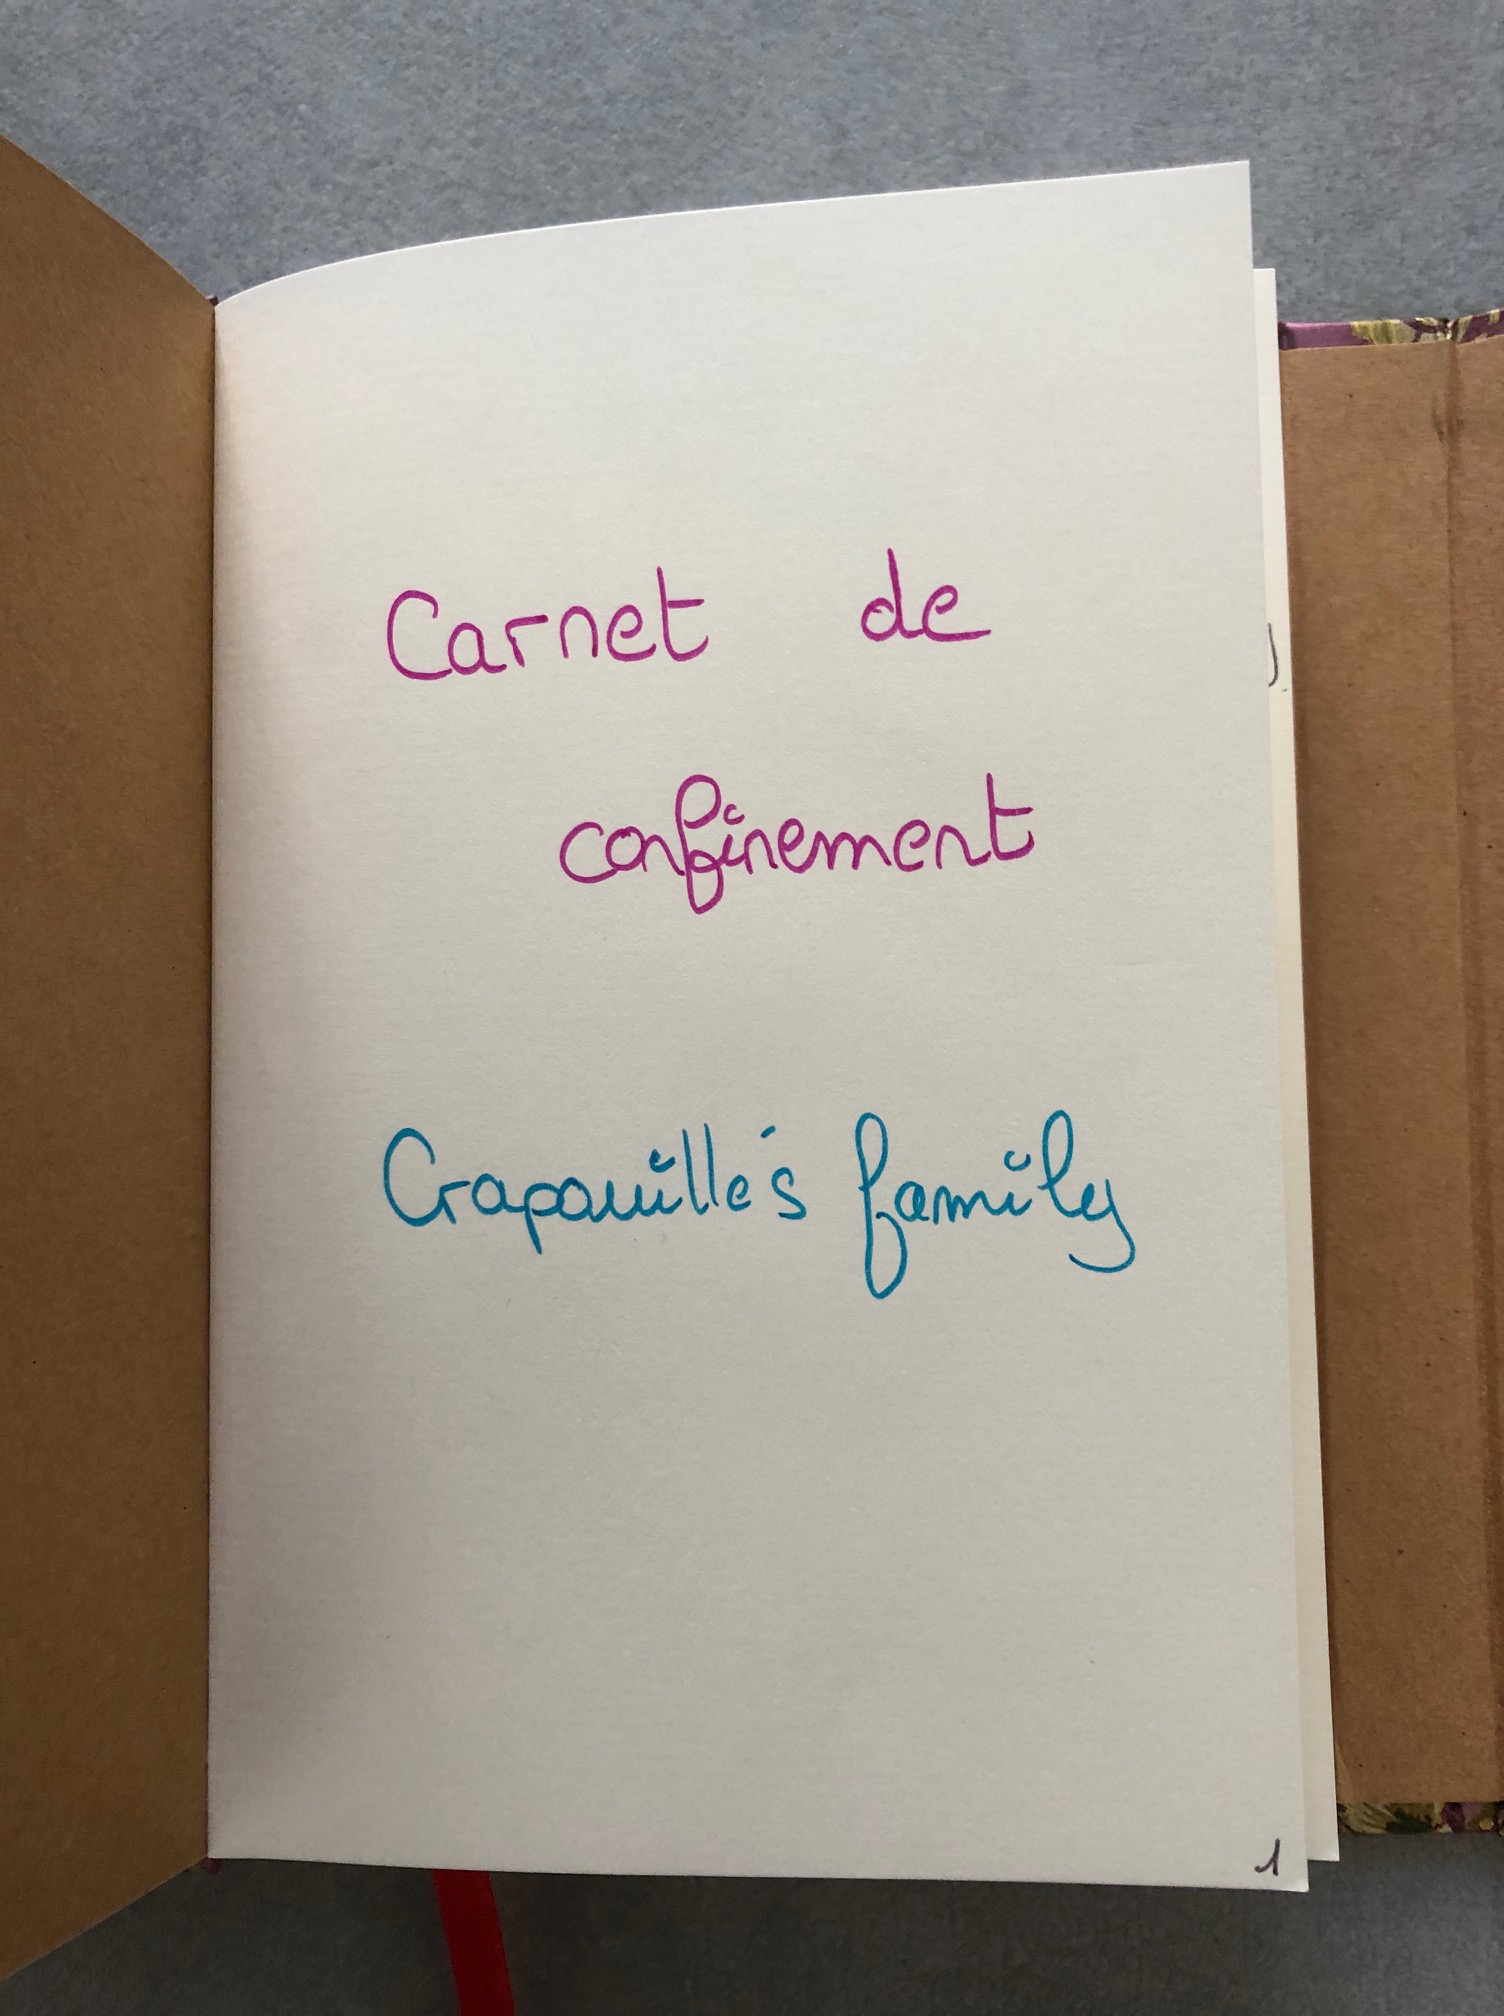 Carnet de
confinement
Crapouille's family
1